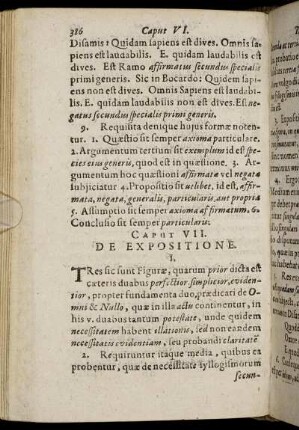 386 Caput VI.
Disamis: Quidam sapiens est dives. Omnis sa-
piens est laudabilis. E. quidam laudabilis est
dives. Est Ramo affirmatus secundus specialis
primi generis. Sic in Bocardo: Quidem sapi-
ens non est dives. Omnis Sapiens est laudabi-
lis. E. quidam laudabilis non est dives. Est ne-
gatus secundus specialis primi generis.
9. Requisita denique hujus formæ noten-
tur. 1. Quæstio sit semper axioma particulare.
2. Argumentum tertium sit exemplum id est spe-
cies ejus generis, quod est in quæstione. 3. Ar-
gumentum hoc quæstioni affirmatæ vel negatæ
subjiciatur 4. Propositio sit utlibet, id est, affir-
mata, negata, generalis, particularis, aut propria
5. Assumptio sit semper axioma affirmatum. 6.
Conclusio sit semper particularis.
CAPUT VII.
DE EXPOSITIONE.
I.
TRes sic sunt Figuræ, quarum prior dicta est
cæteris duabus perfectior simplicior, eviden-
tior, propter fundamenta duo, prædicati de O-
mni & Nullo, quæ in illa actu continentur, in
his v. duabus tantum potestate, unde quidem
necessitatem habent illationis, sed non eandem
necessitatis evidentiam, seu probandi claritatem
2. Requiruntur itaque media, quibus ea
probentur, quæ de necessitate syllogismorum
secun-